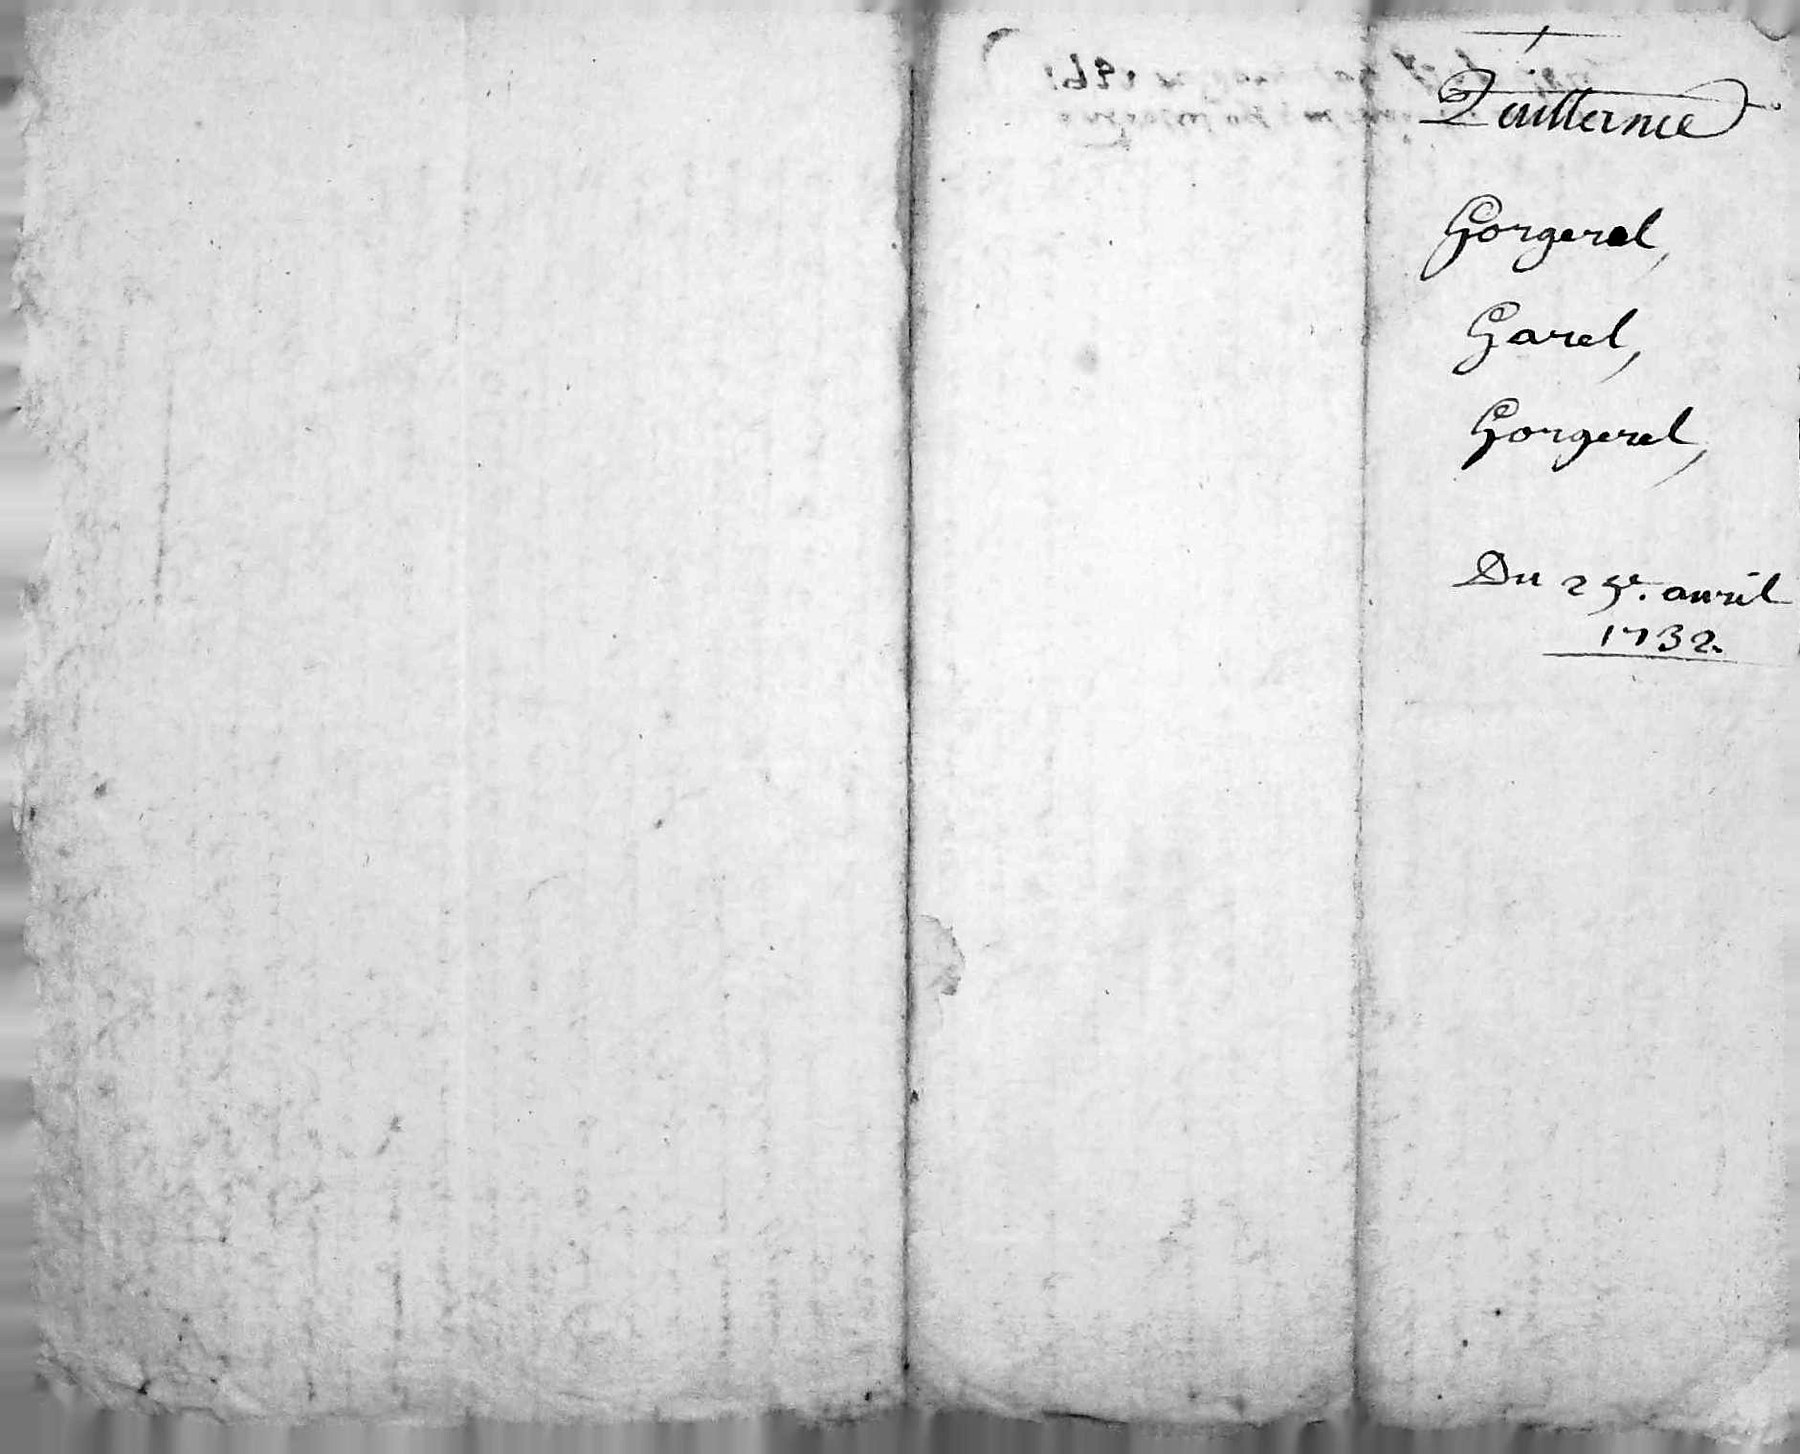 Quittance
Gorgerel,
Garel,
Gorgerel,
Du 29e. avril
1732.